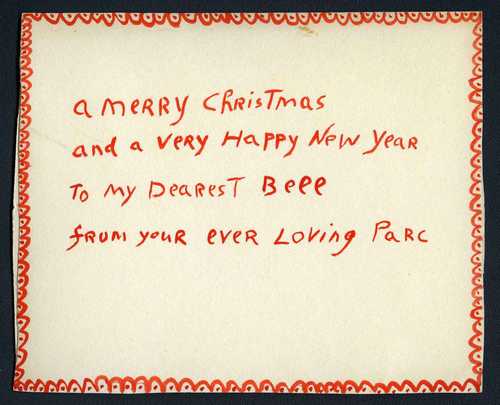 a MERRY ChRisTmas
and a VERY Happy New Year
To my Dearest Beee
from your ever Loving Parc